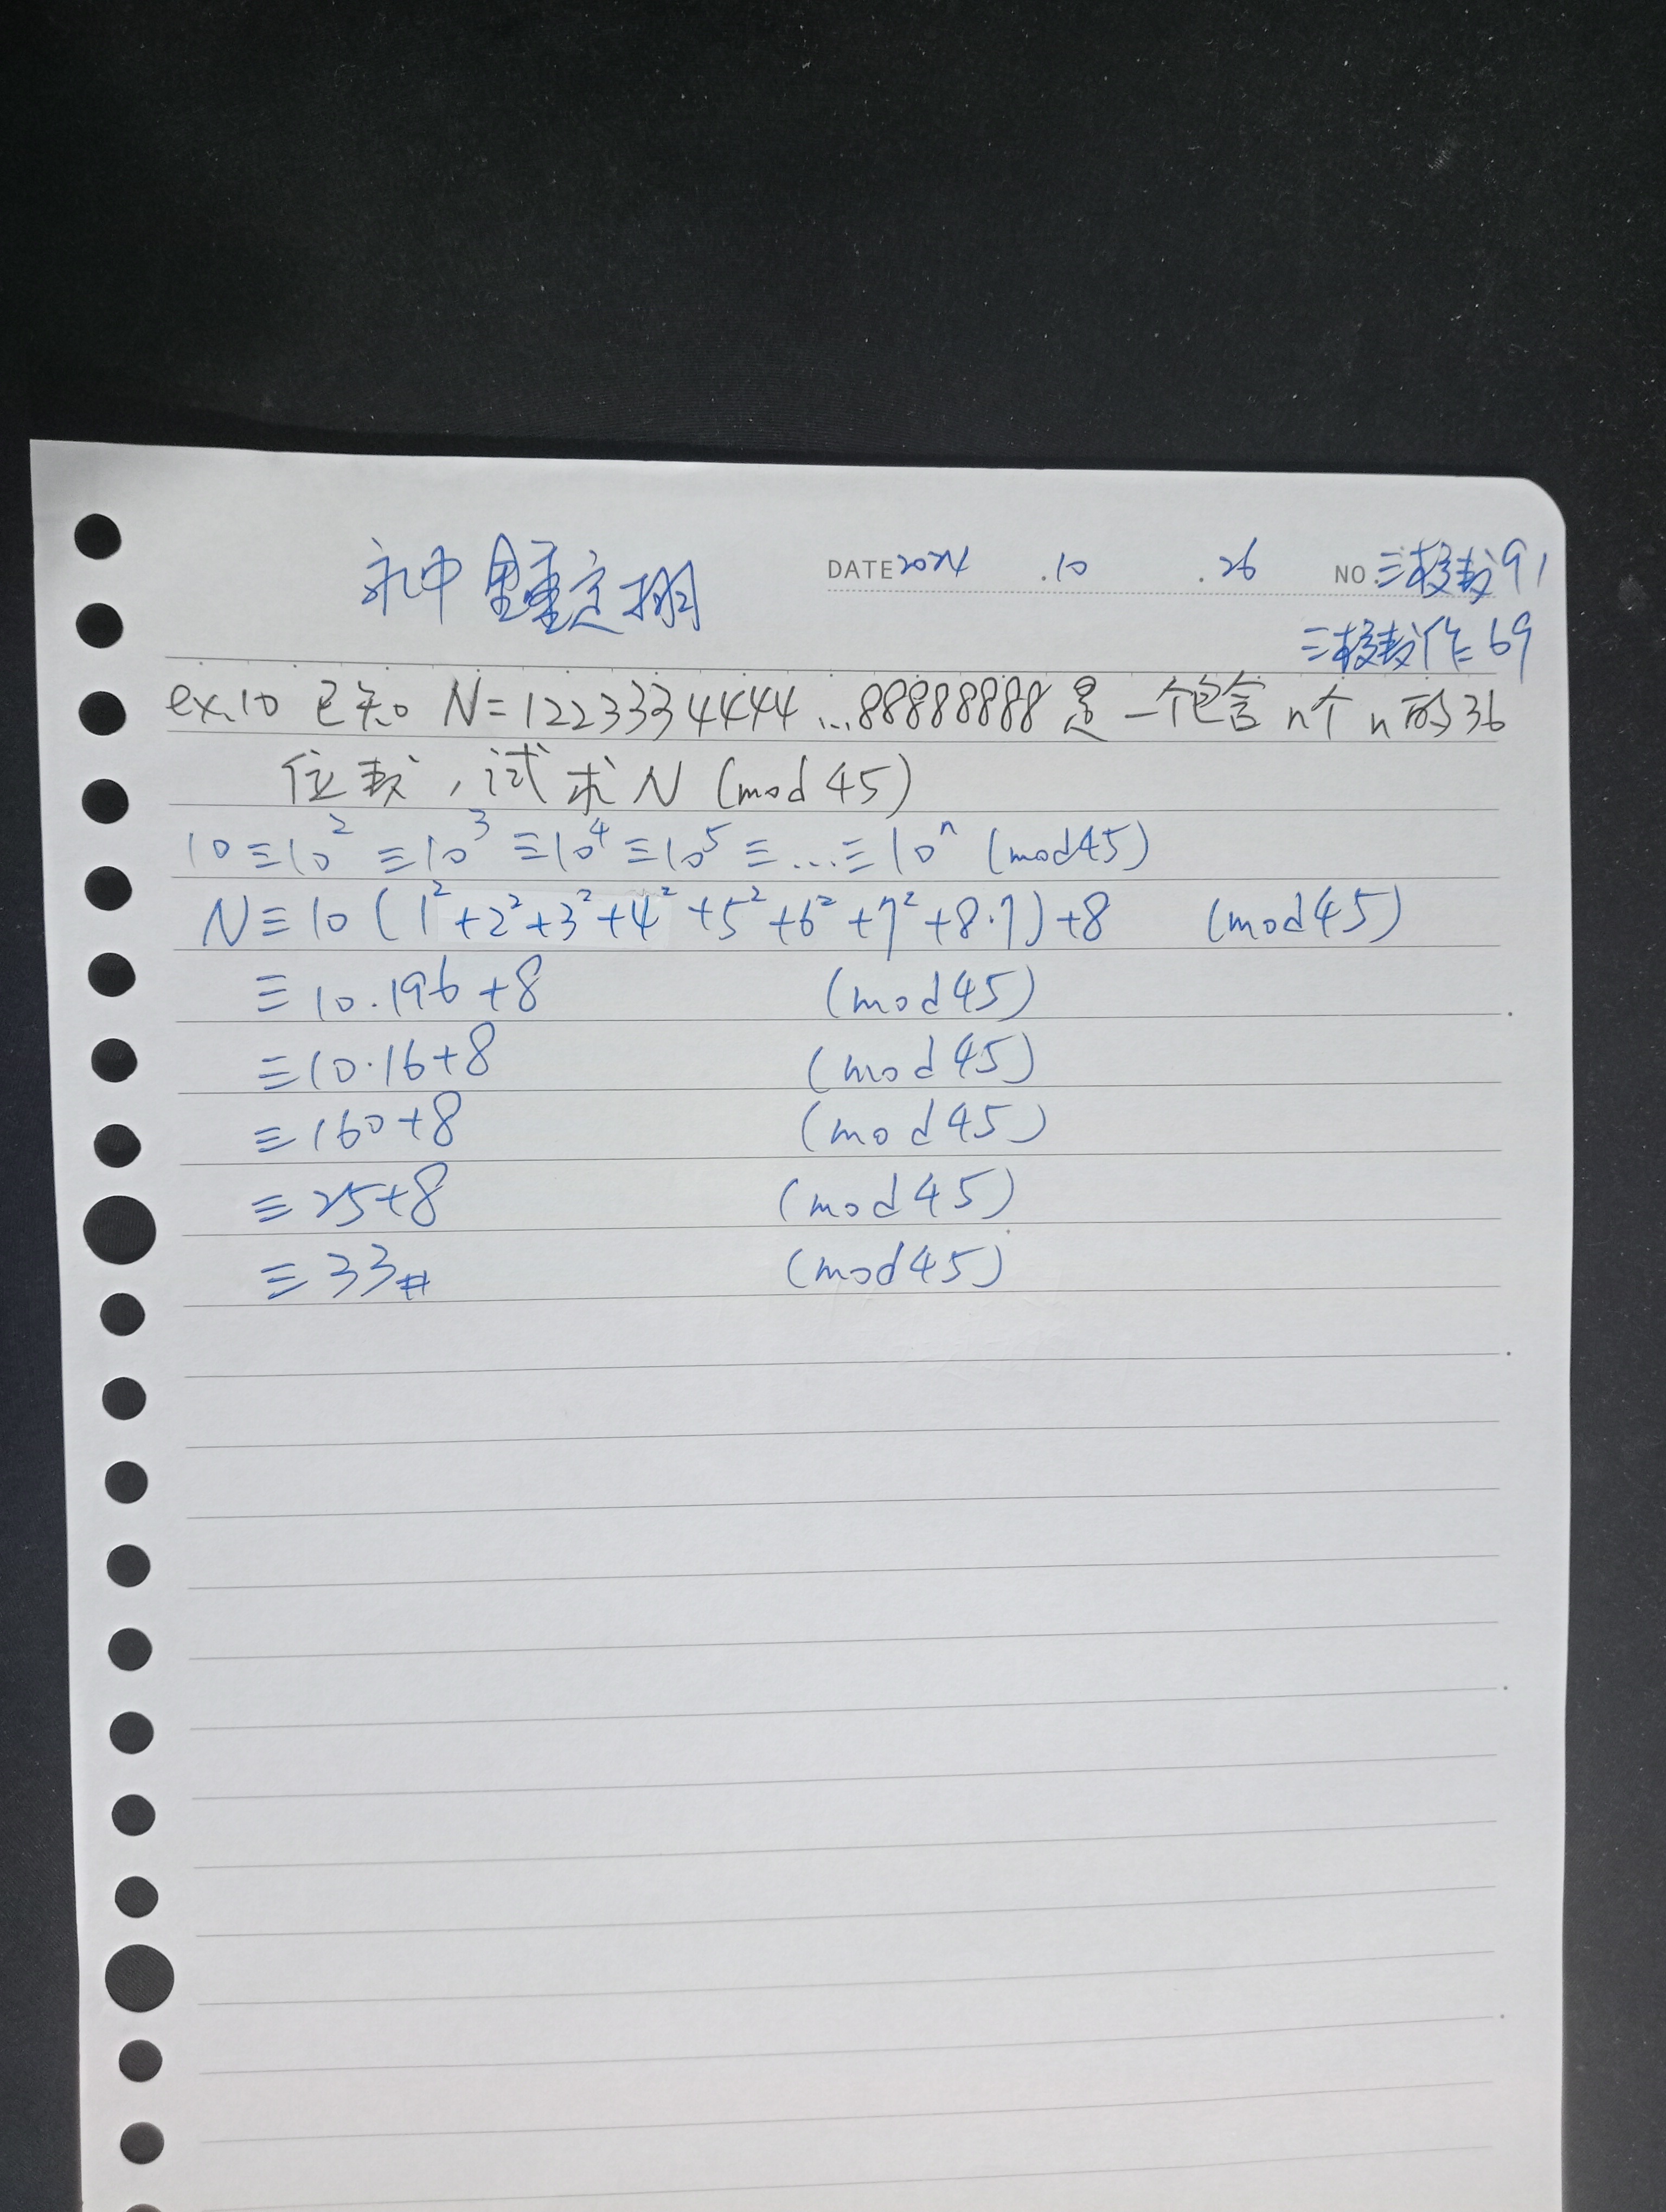 永中鍾定翔
DATE 2024 .10 .26 NO. 三校教91
三校教作69
ex.10 已知 N=1223334444...88888888是一个包含n个n的36
位数，试求N (mod 45)
10≡10²≡10³≡10⁴≡10⁵≡...≡10ⁿ (mod45)
N≡10(1²+2²+3²+4²+5²+6²+7²+8·7)+8 (mod45)
≡10·196+8 (mod45)
≡10·16+8 (mod45)
≡160+8 (mod45)
≡25+8 (mod45)
≡33# (mod45)